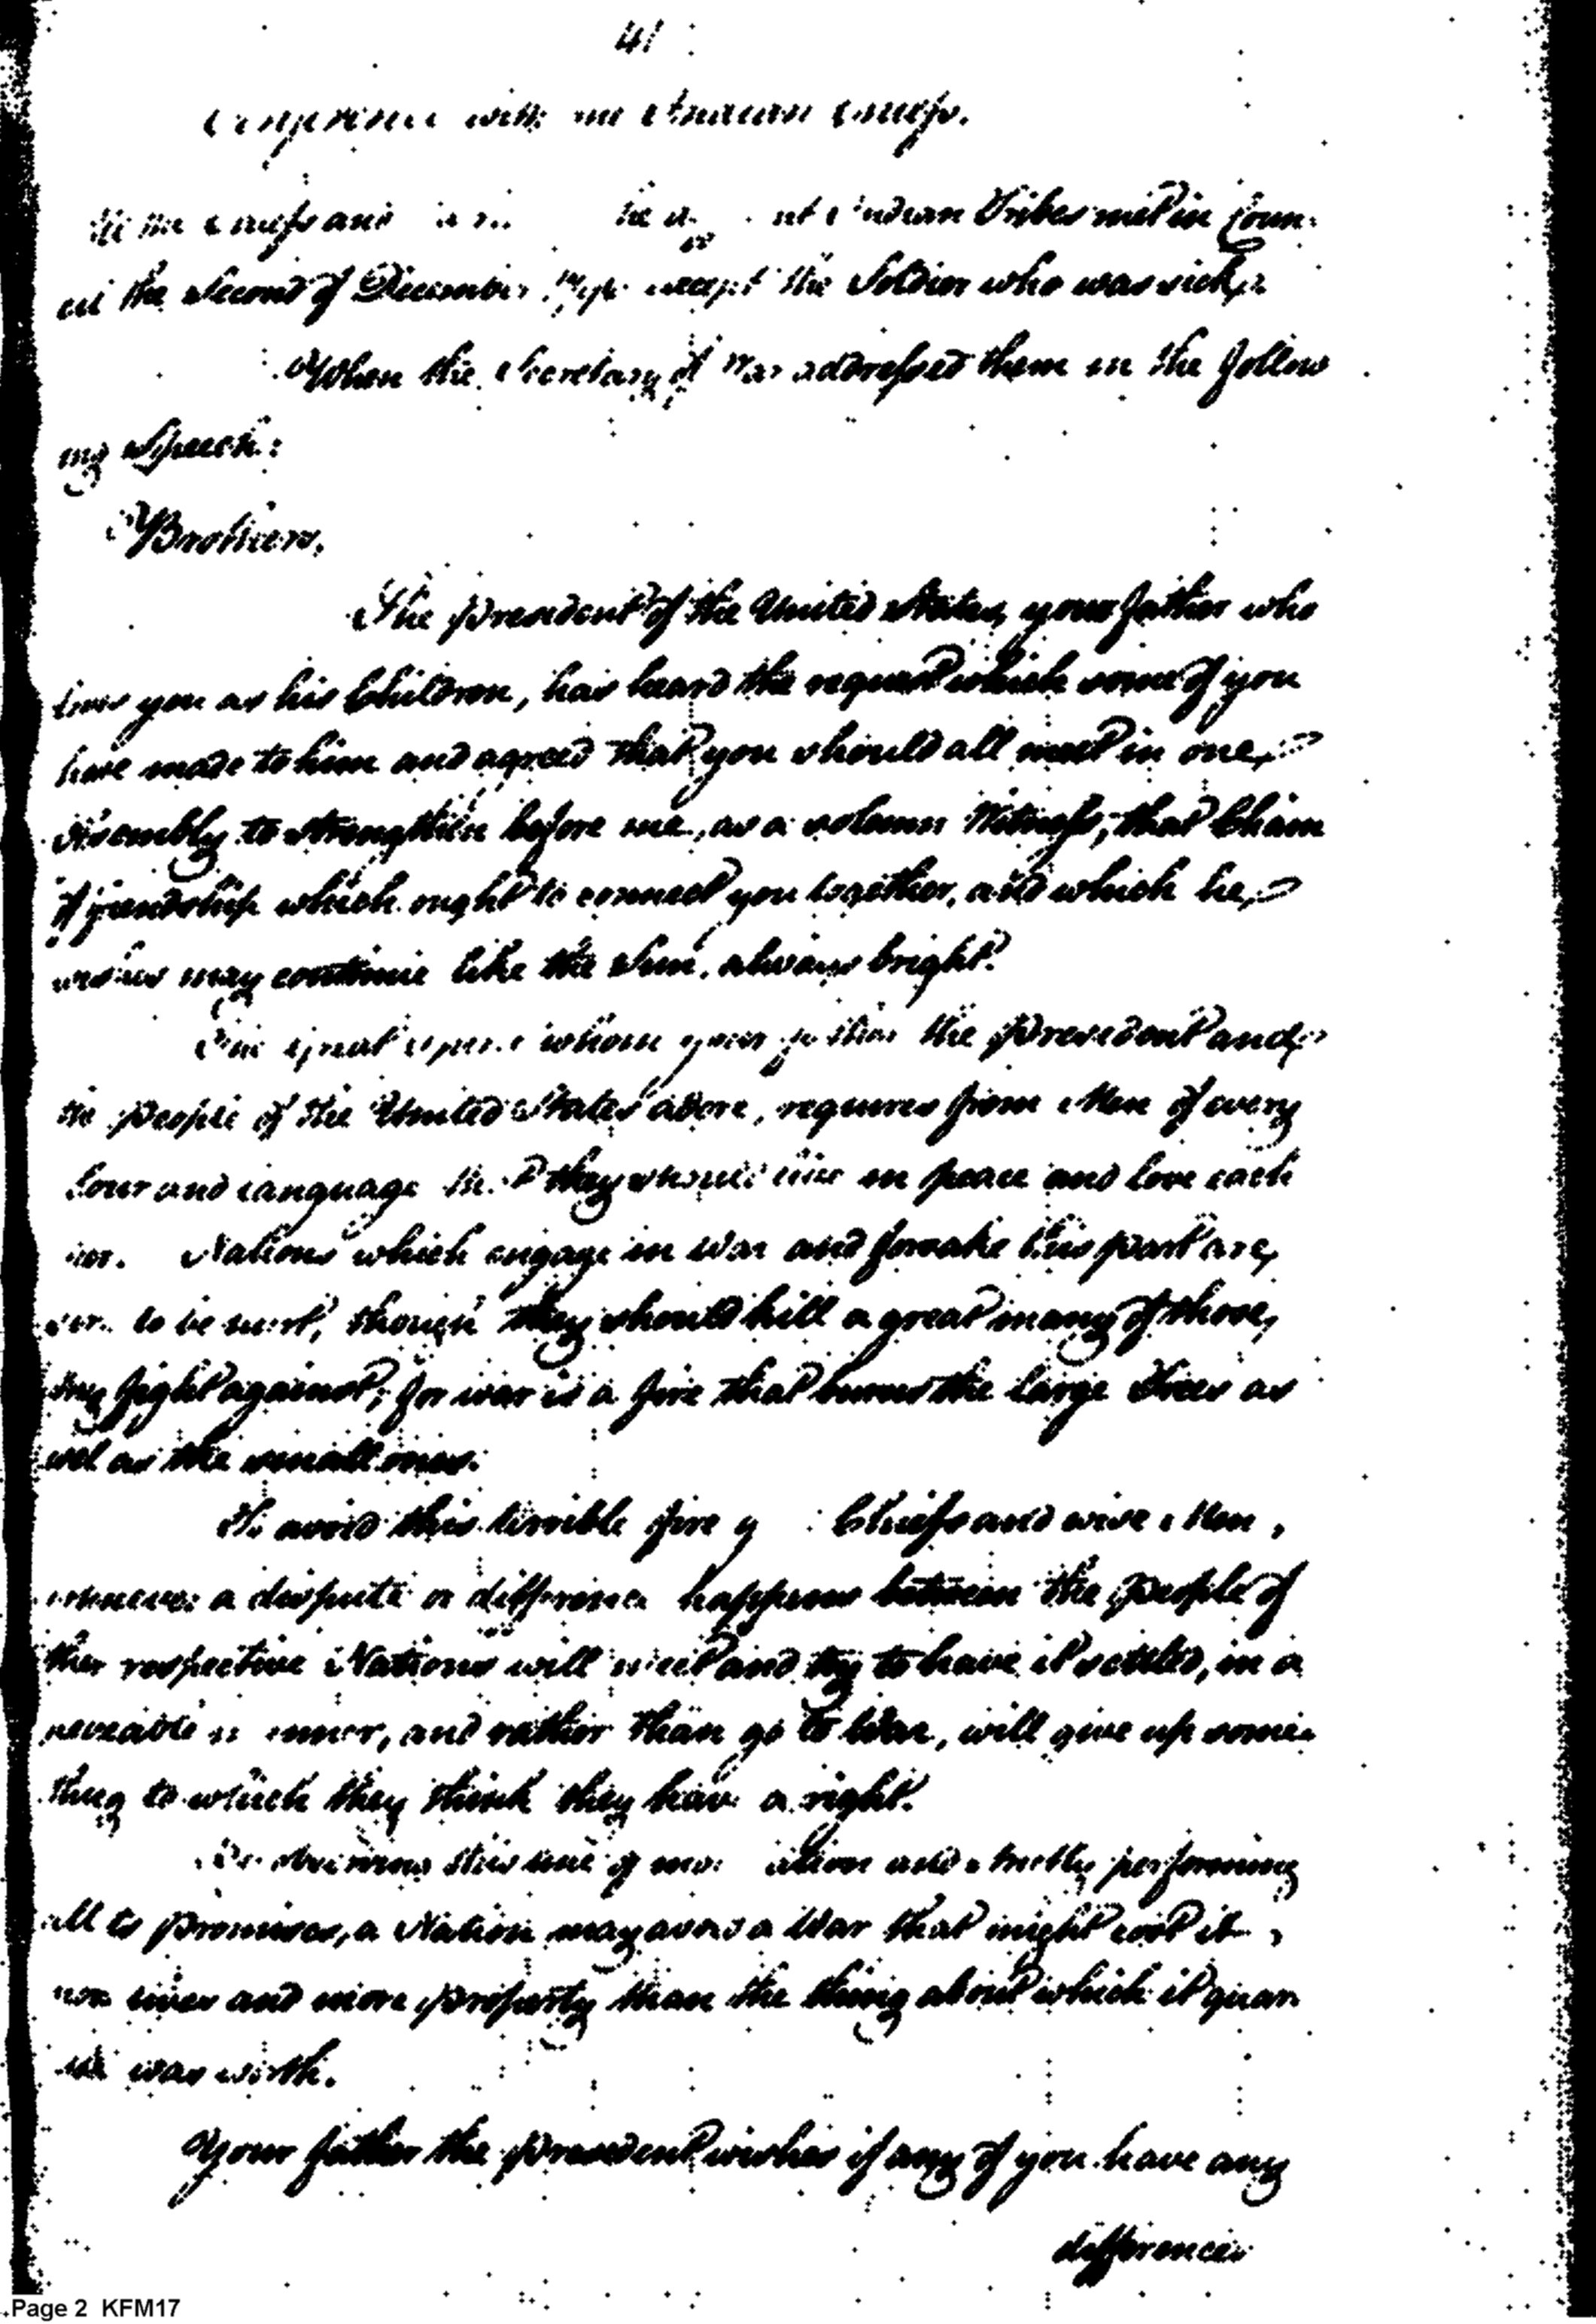 41
with Chiefs.
the Indian Tribes met in Coun-
cil the Second of December except the Soldier who was sick
When the Secretary of War addressed them in the follow
ing Speech:
Brothers,
The President of the United States, your father who
loves you as his Children, has heard the request which some of you
have made to him and agreed that you should all meet in one
Assembly to strengthen before me, as a solemn Witness, that Chain
of friendship which ought to connect you together, and which he
wishes may continue like the Sun, always bright.
The great whom your father the President and
the People of the United States adore, requires from Men of every
and language that they should live in peace and love each
Nations which engage in War and forsake this part are,
to be hurt, though they should kill a great many of those,
they fight against; for war is a fire that burns the large Trees as
well as the small ones.
To avoid this terrible fire Chiefs and wise Men,
whenever a dispute or difference happens between the people of
their respective Nations will meet and try to have it settled, in a
peaceable manner, and rather than go to War, will give up some-
thing to which they think they have a right.
this line of and strictly performing
all its Promises, a Nation may avoid a War that might cost it
more lives and more property than the thing about which it quar
was worth.
Your father the President wishes if any of you have any
differences
Page 2 KFM17